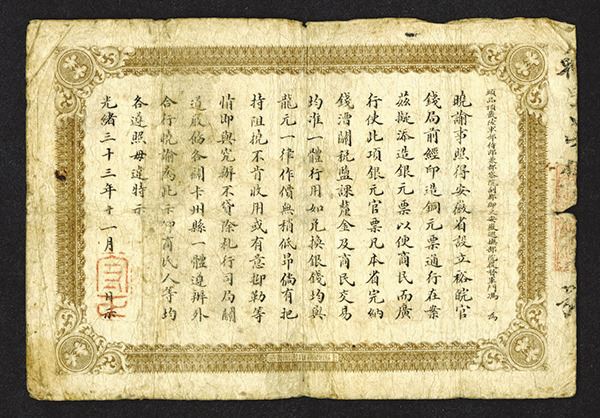 頭品頂戴陸軍部侍郎兼都察院副都御史安徽巡撫部院兼提督軍門馮 為
曉諭事照得安徽省設立裕皖官
錢局前經印造銅元票通行在案
茲擬添造銀元票以便商民而廣
行使此項銀元官票凡本省完納
錢漕關稅鹽課釐金及商民交易
均准一體行用如兌換銀錢均與
龍元一律作價無稍低昂倘有把
持阻撓不肯收用或有意抑勒等
情即與究辦不貸除札行司局關
道飭各關卡州縣一體遵辦外
合行曉諭為此示仰商民人等均
各遵照毋違特示
光緒三十三年十一月 日示